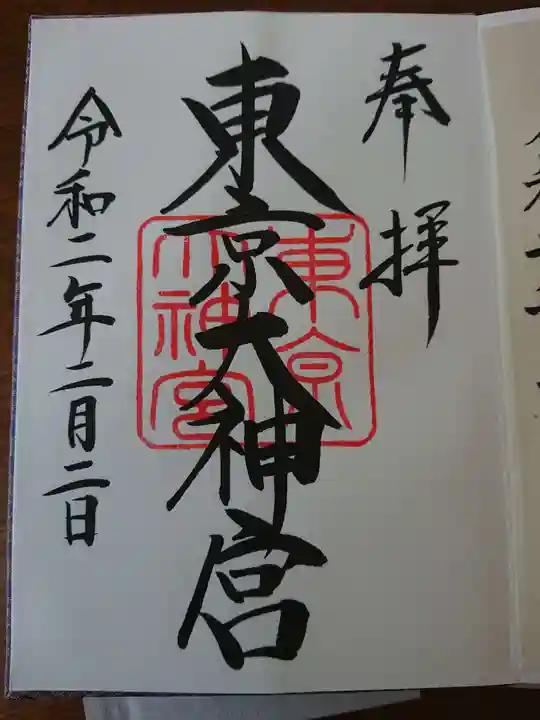 奉拝
東京大神宮
東京
大神宮
令和二年二月二日